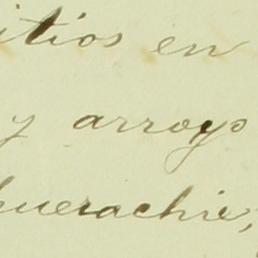 sitios en
y arroyo
huerachic,